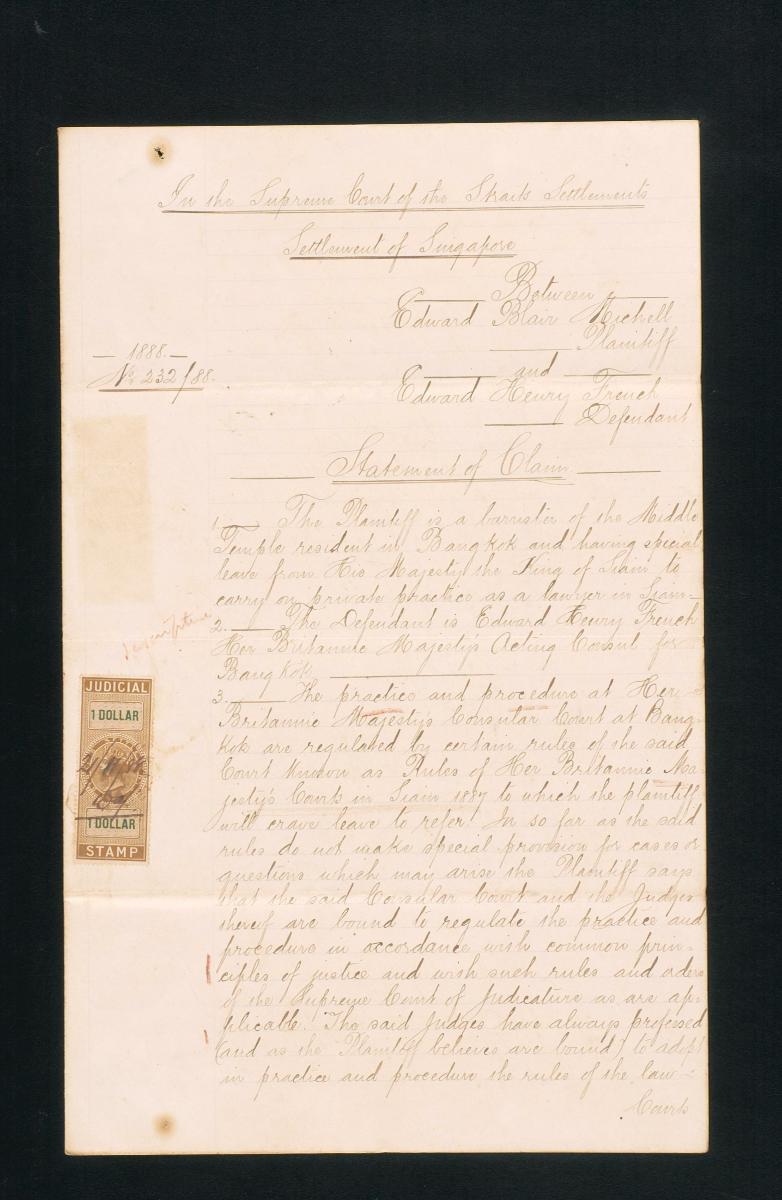 In the Supreme Court of the Straits Settlements
Settlement of Singapore
Between
Edward Blair Michell
Plaintiff
and
— 1888. —
No 232/88.
Edward Henry French
Defendant
Statement of Claim
1. The Plaintiff is a barrister of the Middle
Temple resident in Bangkok and having special
leave from His Majesty the King of Siam to
carry on private practice as a lawyer in Siam —
2. — The Defendant is Edward Henry French
Her Britannic Majesty's Acting Consul for
Bangkok
3. The practice and procedure at Her
Britannic Majesty's Consular Court at Bang-
kok are regulated by certain rules of the said
Court known as Rules of Her Britannic Ma-
jesty's Courts in Siam 1887 to which the plaintiff
will crave leave to refer. In so far as the said
rules do not make special provision for cases or
questions which may arise the Plaintiff says
that the said Consular Court and the Judges
thereof are bound to regulate the practice and
procedure in accordance with common prin-
ciples of justice and with such rules and orders
of the Supreme Court of Judicature as are ap-
plicable. The said Judges have always professed
(and as the Plaintiff believes are bound) to adopt
in practice and procedure the rules of the law
Courts
JUDICIAL
1 DOLLAR
1 DOLLAR
STAMP